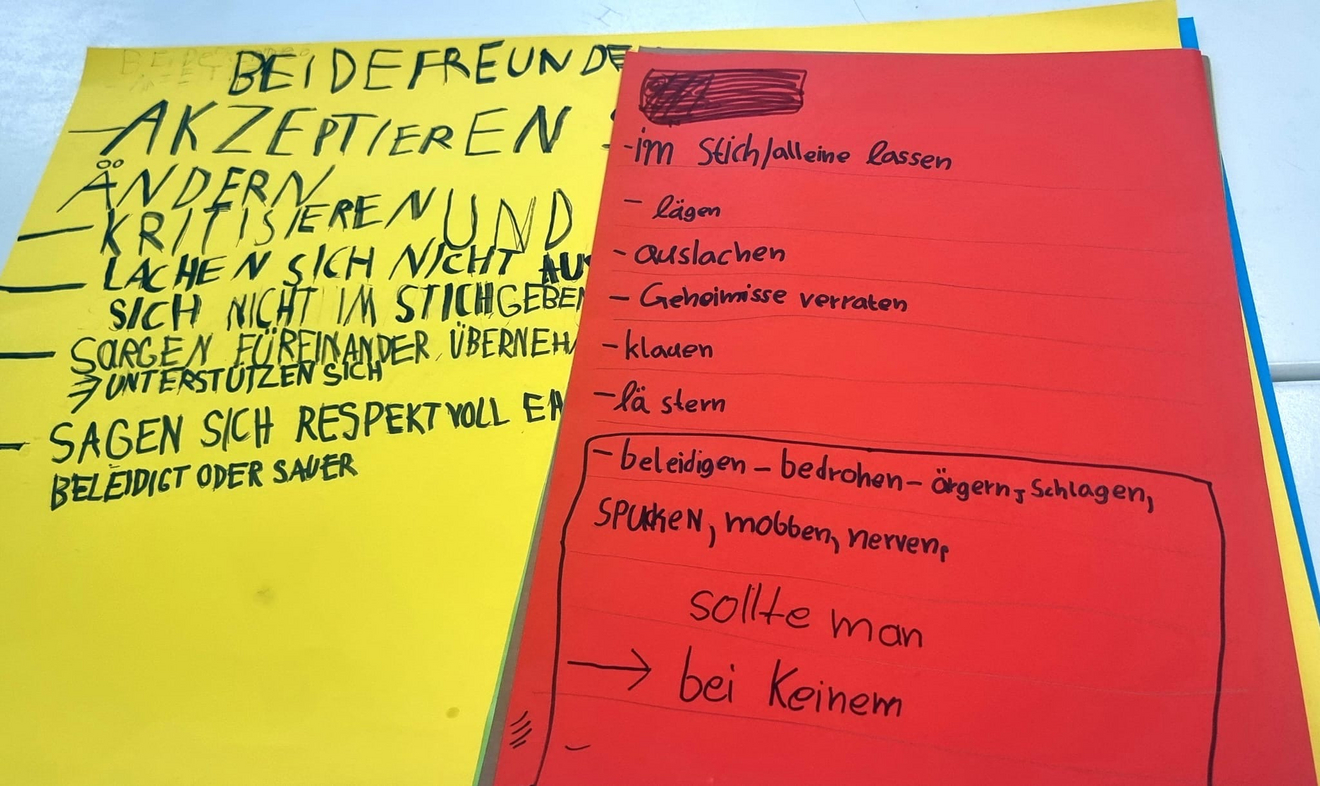 BEIDE FREUNDE
- AKZEPTIEREN
ÄNDERN
- KRITISIEREN UND
- LACHEN SICH NICHT AUS
SICH NICHT IM STICHGEBEN
- SORGEN FÜREINANDER, ÜBERNEH
→ UNTERSTÜTZEN SICH
- SAGEN SICH RESPEKTVOLL
BELEIDIGT ODER SAUER
- im Stich/alleine lassen
- lägen
- auslachen
- Geheimisse verraten
- klauen
- lästern
- beleidigen - bedrohen - ärgern, Schlagen,
SPUKKEN, mobben, nerven,
sollte man
→ bei Keinem